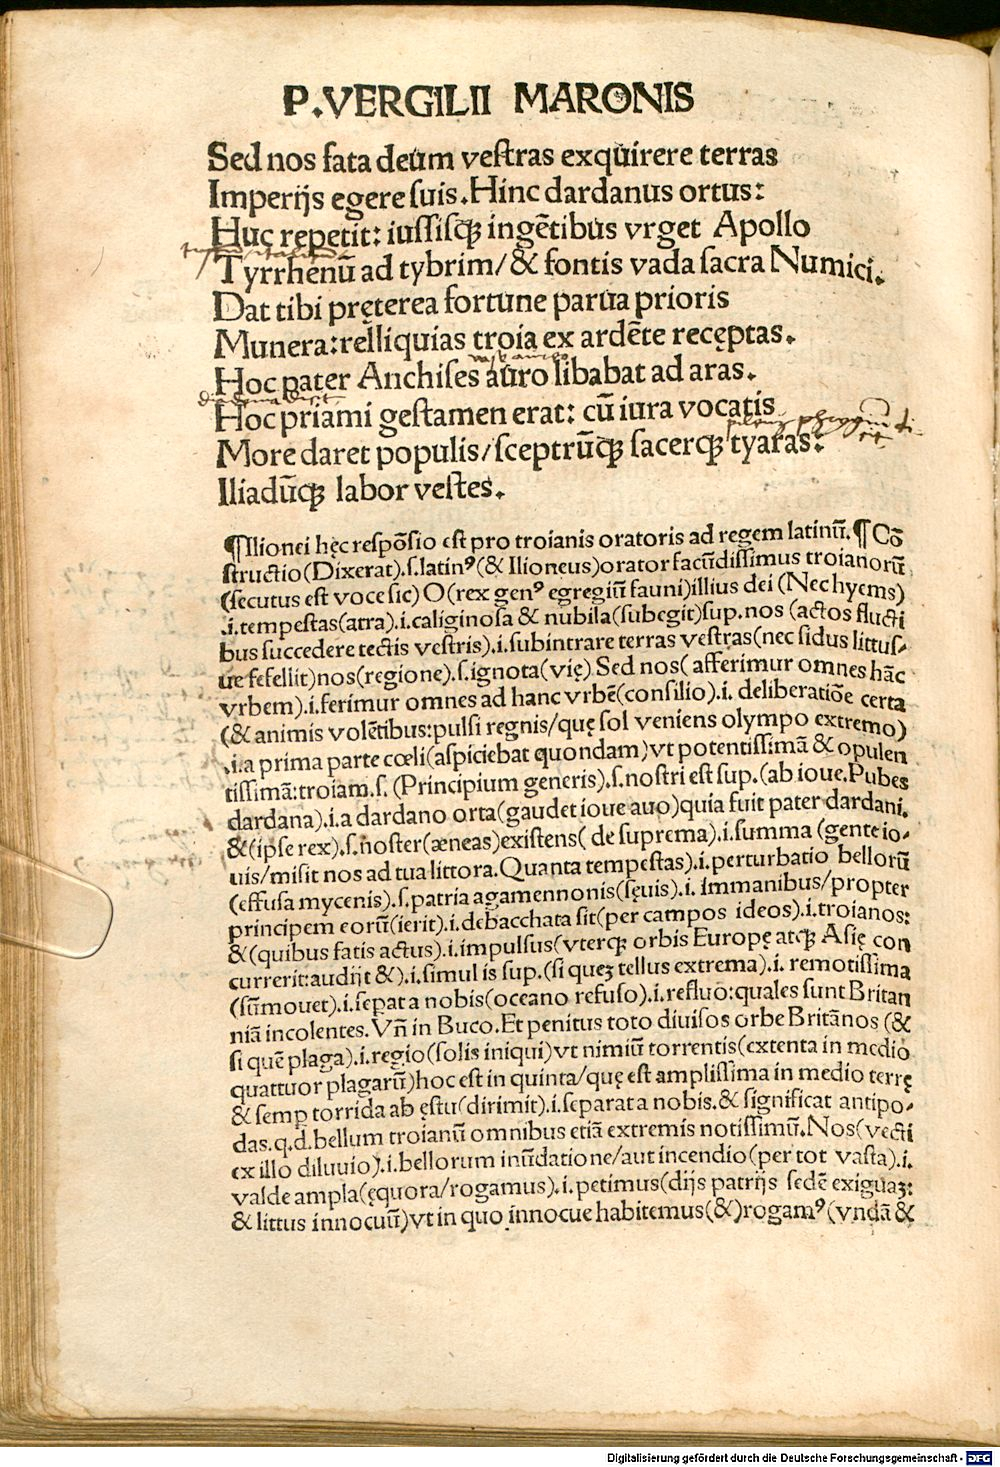 P.VERGILII MARONIS
Sed nos fata deum vestras exquirere terras
Imperijs egere suis.Hinc dardanus ortus:
Huc repetit: iussisq̃ ingẽtibus vrget Apollo
Tyrrhenũ ad tybrim/& fontis vada sacra Numici.
Dat tibi pręterea fortune parua prioris
Munera:relliquias troia ex ardẽte recęptas.
Hoc pater Anchises auro libabat ad aras.
Hoc priami gestamen erat: cũ iura vocatis
More daret populis/sceptrũq̃ sacerq̃ tyaras:
Iliadũq̃ labor vestes.
¶Ilionei hęc respõsio est pro troianis oratoris ad regem latinũ.¶Cõ
structio(Dixerat).s.latinꝰ(& Ilioneus)orator facũdissimus troianorũ
(secutus est voce sic) O(rex genꝰ egregiũ fauni)illius dei (Nec hyems)
.i.tempestas(atra).i.caliginosa & nubila(subegit)sup.nos (actos flucti
bus succedere tectis vestris).i.subintrare terras vestras(nec sidus littus-
ue fefellit)nos(regione).s.ignota(vię) Sed nos( afferimur omnes hãc
vrbem).i.ferimur omnes ad hanc vrbẽ(consilio).i. deliberatiõe certa
(& animis volẽtibus:pulsi regnis/quę sol veniens olympo extremo)
.i.a prima parte cœli(aspiciebat quondam)vt potentissimã & opulen
tissimã:troiam.s. (Principium generis).s.nostri est sup.(ab ioue.Pubes
dardana).i.a dardano orta(gaudet ioue auo)quia fuit pater dardani.
&(ipse rex).s.noster(æneas)existens( de suprema).i.summa (gente io-
uis/misit nos ad tua littora.Quanta tempestas).i.perturbatio bellorũ
(effusa mycenis).s.patria agamennonis(sęuis).i. immanibus/propter
principem eorũ(ierit).i.debacchata sit(per campos ideos).i.troianos:
&(quibus fatis actus).i.impulsus(vterq̃ orbis Europę atq̃ Asię con
currerit:audijt &).i.simul is sup.(si queʒ tellus extrema).i. remotissima
(sũmouet).i.sepat a nobis(oceano refuso).i.refluo:quales sunt Britan
niã incolentes.Vñ in Buco.Et penitus toto diuisos orbe Britãnos (&
si quẽ plaga).i.regio(solis iniqui)vt nimiũ torrentis(extenta in medio
quattuor plagarũ)hoc est in quinta/quę est amplissima in medio terrę
& semp torrida ab ęstu(dirimit).i.separat a nobis.& significat antipo-
das.q.d.bellum troianũ omnibus etiã extremis notissimũ.Nos(vecti
ex illo diluuio).i.bellorum inũdatione/aut incendio(per tot vasta).i.
valde ampla(ęquora/rogamus).i.petimus(dijs patrijs sedẽ exiguaʒ:
& littus innocuũ)vt in quo innocue habitemus(&)rogamꝰ(vndã &
Digitalisierung gefördert durch die Deutsche Forschungsgemeinschaft - DFG